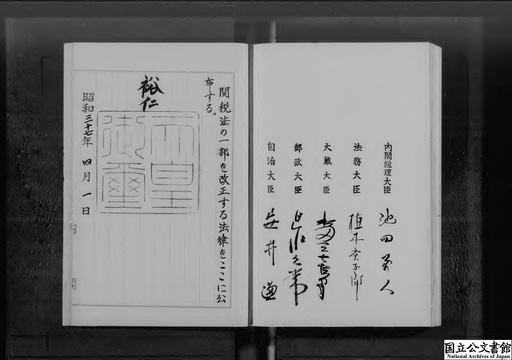 関税法の一部を改正する法律をここに公
布する。
裕仁
天皇
御璽
昭和三十七年 四月 一日
内閣総理大臣 池田勇人
法務大臣 植木庚子郎
大蔵大臣 水田三喜男
郵政大臣 迫水久常
自治大臣 安井謙
国立公文書館
National Archives of Japan